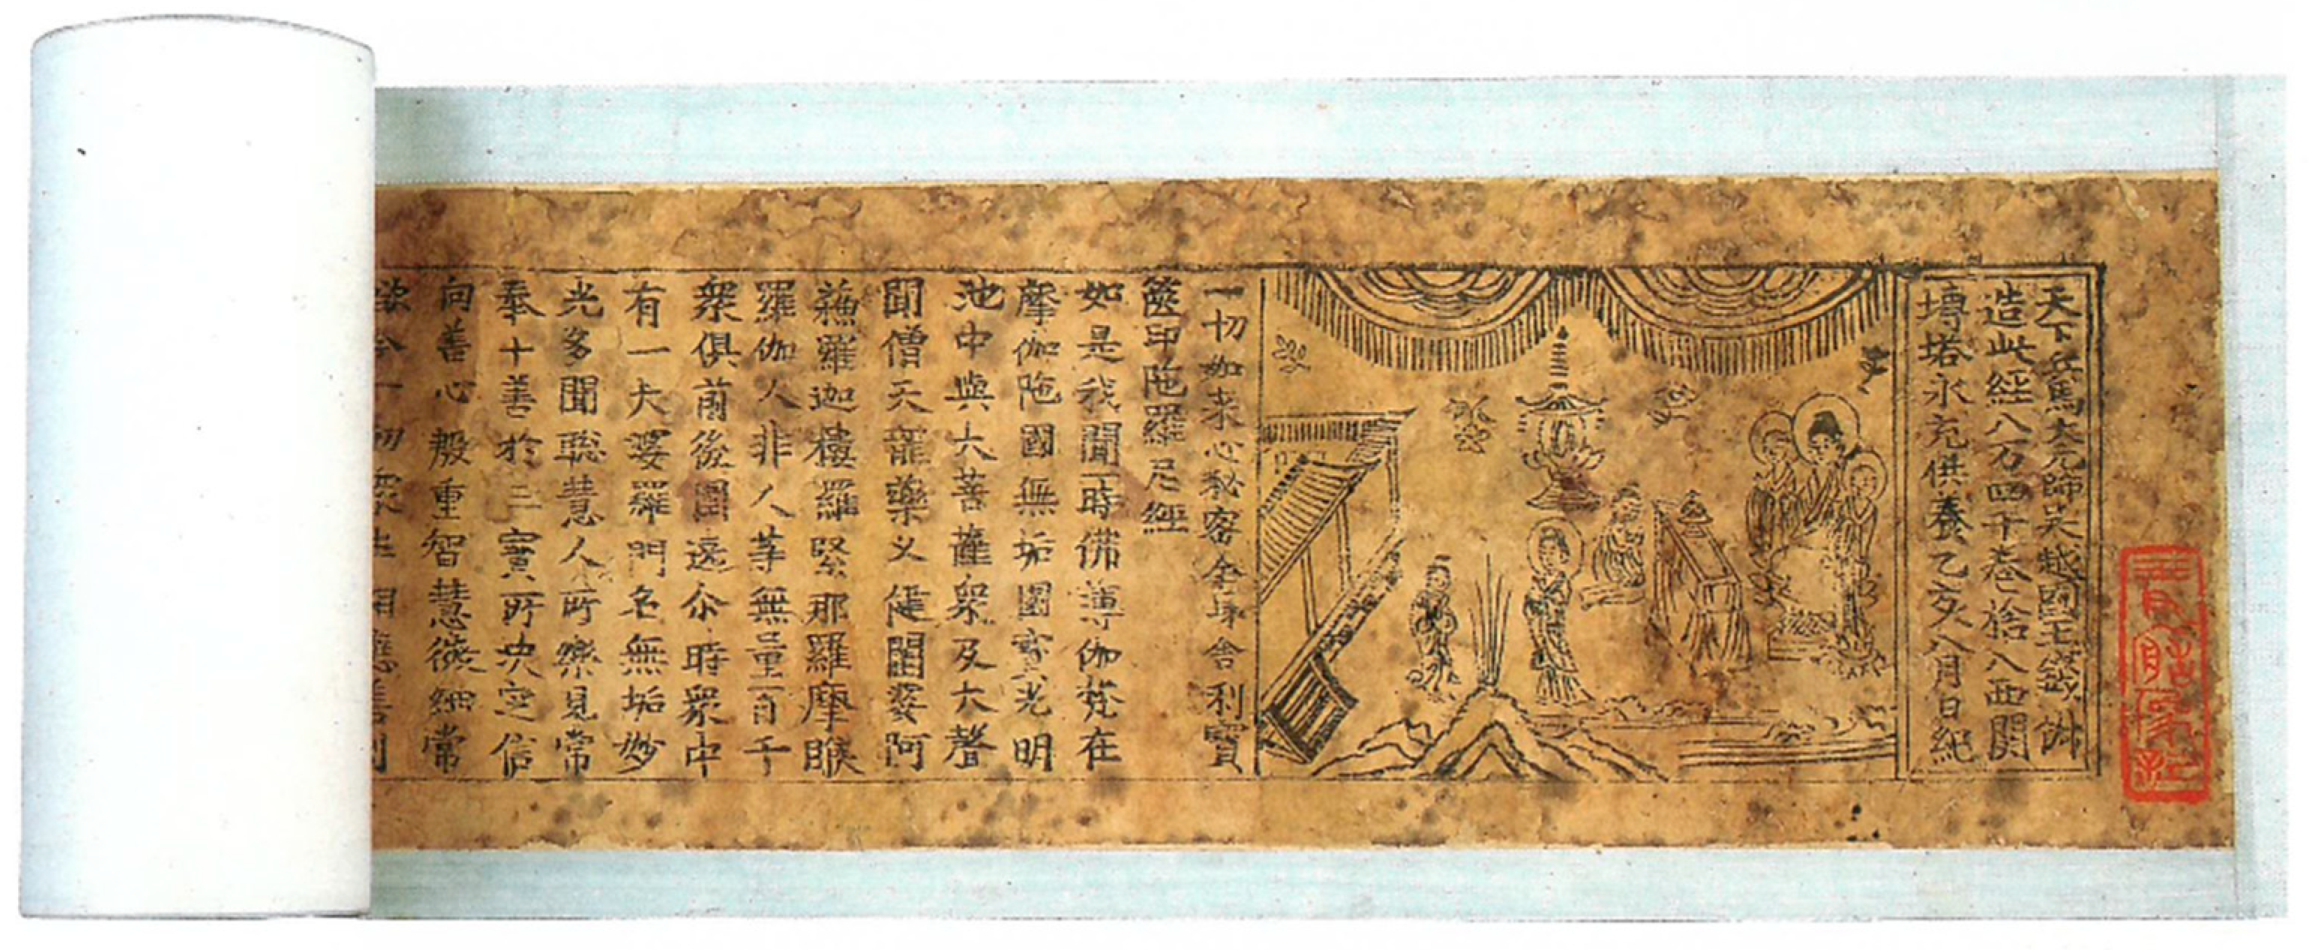 天下兵馬大元帥吳越國王錢俶
造此經八万四千卷捨入西關
塼塔永充供養乙亥八月日紀
一切如来心秘密全身舍利寶
篋印陁羅尼經
如是我聞一時佛薄伽梵在
摩伽陁國無垢園寶光明
池中與大菩薩衆及大聲
聞僧天龍藥叉健闥婆阿
蘓羅迦樓羅緊那羅摩睺
羅伽人非人等無量百千
衆俱前後圍遶尒時衆中
有一大婆羅門名無垢妙
光多聞聰慧人所樂見常
奉十善於三寶所决定信
向善心殷重智慧微細常
欲令一切衆生相應善利